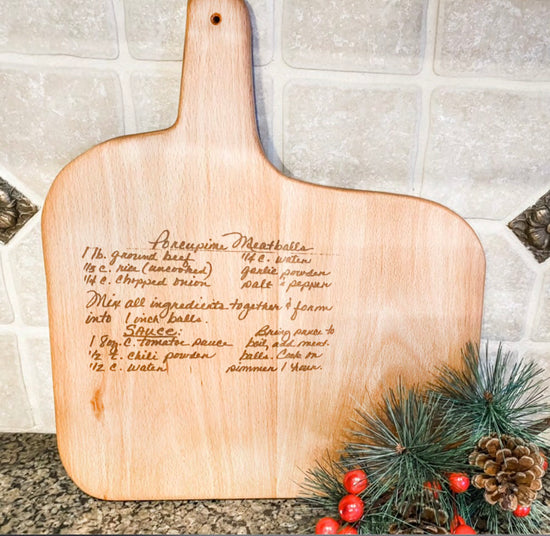 Porcupine Meatballs
1 lb. ground beef 1/4 c. water
1/3 c. rice (uncooked) garlic powder
1/4 c. chopped onion salt & pepper
Mix all ingredients together & form
into 1 inch balls.
SAUCE: Bring sauce to
1 8oz. c. tomatoe sauce boil, add meat
1/2 t. chili powder balls. Cook on
1/2 c. water simmer 1 hour.